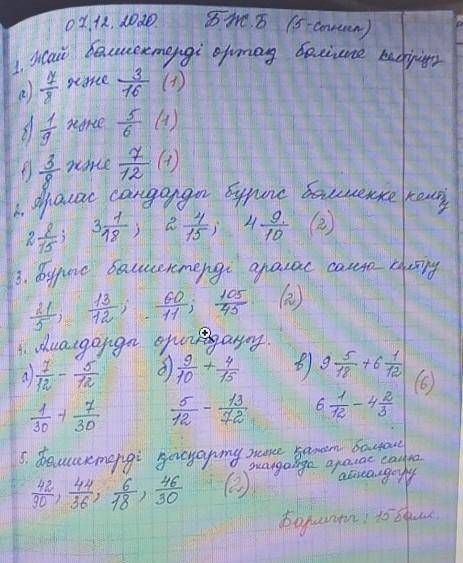 07.12.2020 БЖБ (5-сынып)
1. Жай бөлшектерді ортақ бөлімге келтіріңіз
а) 7/8 және 3/16 (1)
б) 1/9 және 5/6 (1)
в) 3/8 және 7/12 (1)
2. Аралас сандарды бұрыс бөлшекке келтіру
2 8/15; 3 1/18; 2 4/15; 4 9/10 (2)
3. Бұрыс бөлшектерді аралас санға келтіру
21/5; 13/12; 60/11; 105/45 (2)
4. Амалдарды орындаңыз.
а) 7/12 - 5/12 б) 9/10 + 4/15 в) 9 5/18 + 6 1/12 (6)
1/30 + 7/30 5/12 - 13/72 6 1/12 - 4 2/3
5. Бөлшектерді қысқарту және қажет болған
жағдайда аралас санға
айналдыру
42/90, 44/36, 6/18, 46/30 (2)
Барлығы: 15 балл.